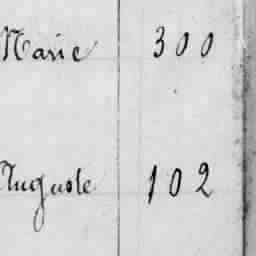 Marie 300
Auguste 102